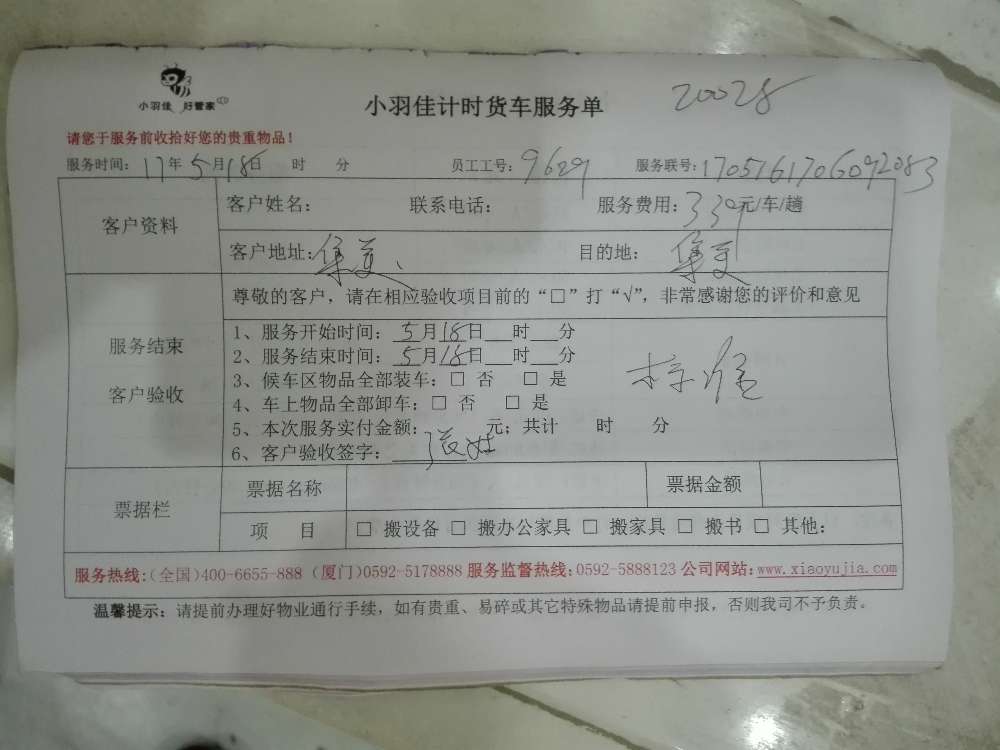 小羽佳 好管家
小羽佳计时货车服务单
20028
请您于服务前收拾好您的贵重物品!
服务时间: 17年5月18日 时 分 员工工号: 9629 服务联号: 1705161706092083
客户资料
客户姓名: 联系电话: 服务费用: 339元/车/趟
客户地址: 集美、 目的地: 集美
尊敬的客户，请在相应验收项目前的“□”打“√”，非常感谢您的评价和意见
服务结束
客户验收
1、服务开始时间: 5月18日___时___分
2、服务结束时间: 5月18日___时___分
3、候车区物品全部装车: □ 否 □ 是
4、车上物品全部卸车: □ 否 □ 是
5、本次服务实付金额: 元; 共计 时 分
6、客户验收签字:
票据栏
票据名称 票据金额
项 目 □ 搬设备 □ 搬办公家具 □ 搬家具 □ 搬书 □ 其他:
服务热线:(全国)400-6655-888 (厦门)0592-5178888 服务监督热线:0592-5888123 公司网站:www.xiaoyujia.com
温馨提示: 请提前办理好物业通行手续，如有贵重、易碎或其它特殊物品请提前申报，否则我司不予负责。